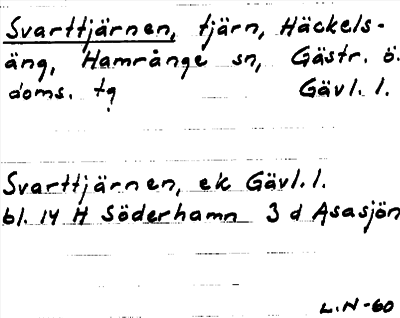 Svarttjärnen, tjärn, Häckels-
äng, Hamrånge sn, Gästr. ö.
doms. tg Gävl. l.
Svarttjärnen, ek Gävl. l.
bl. 14 H Söderhamn 3 d Asasjön
L.N-60